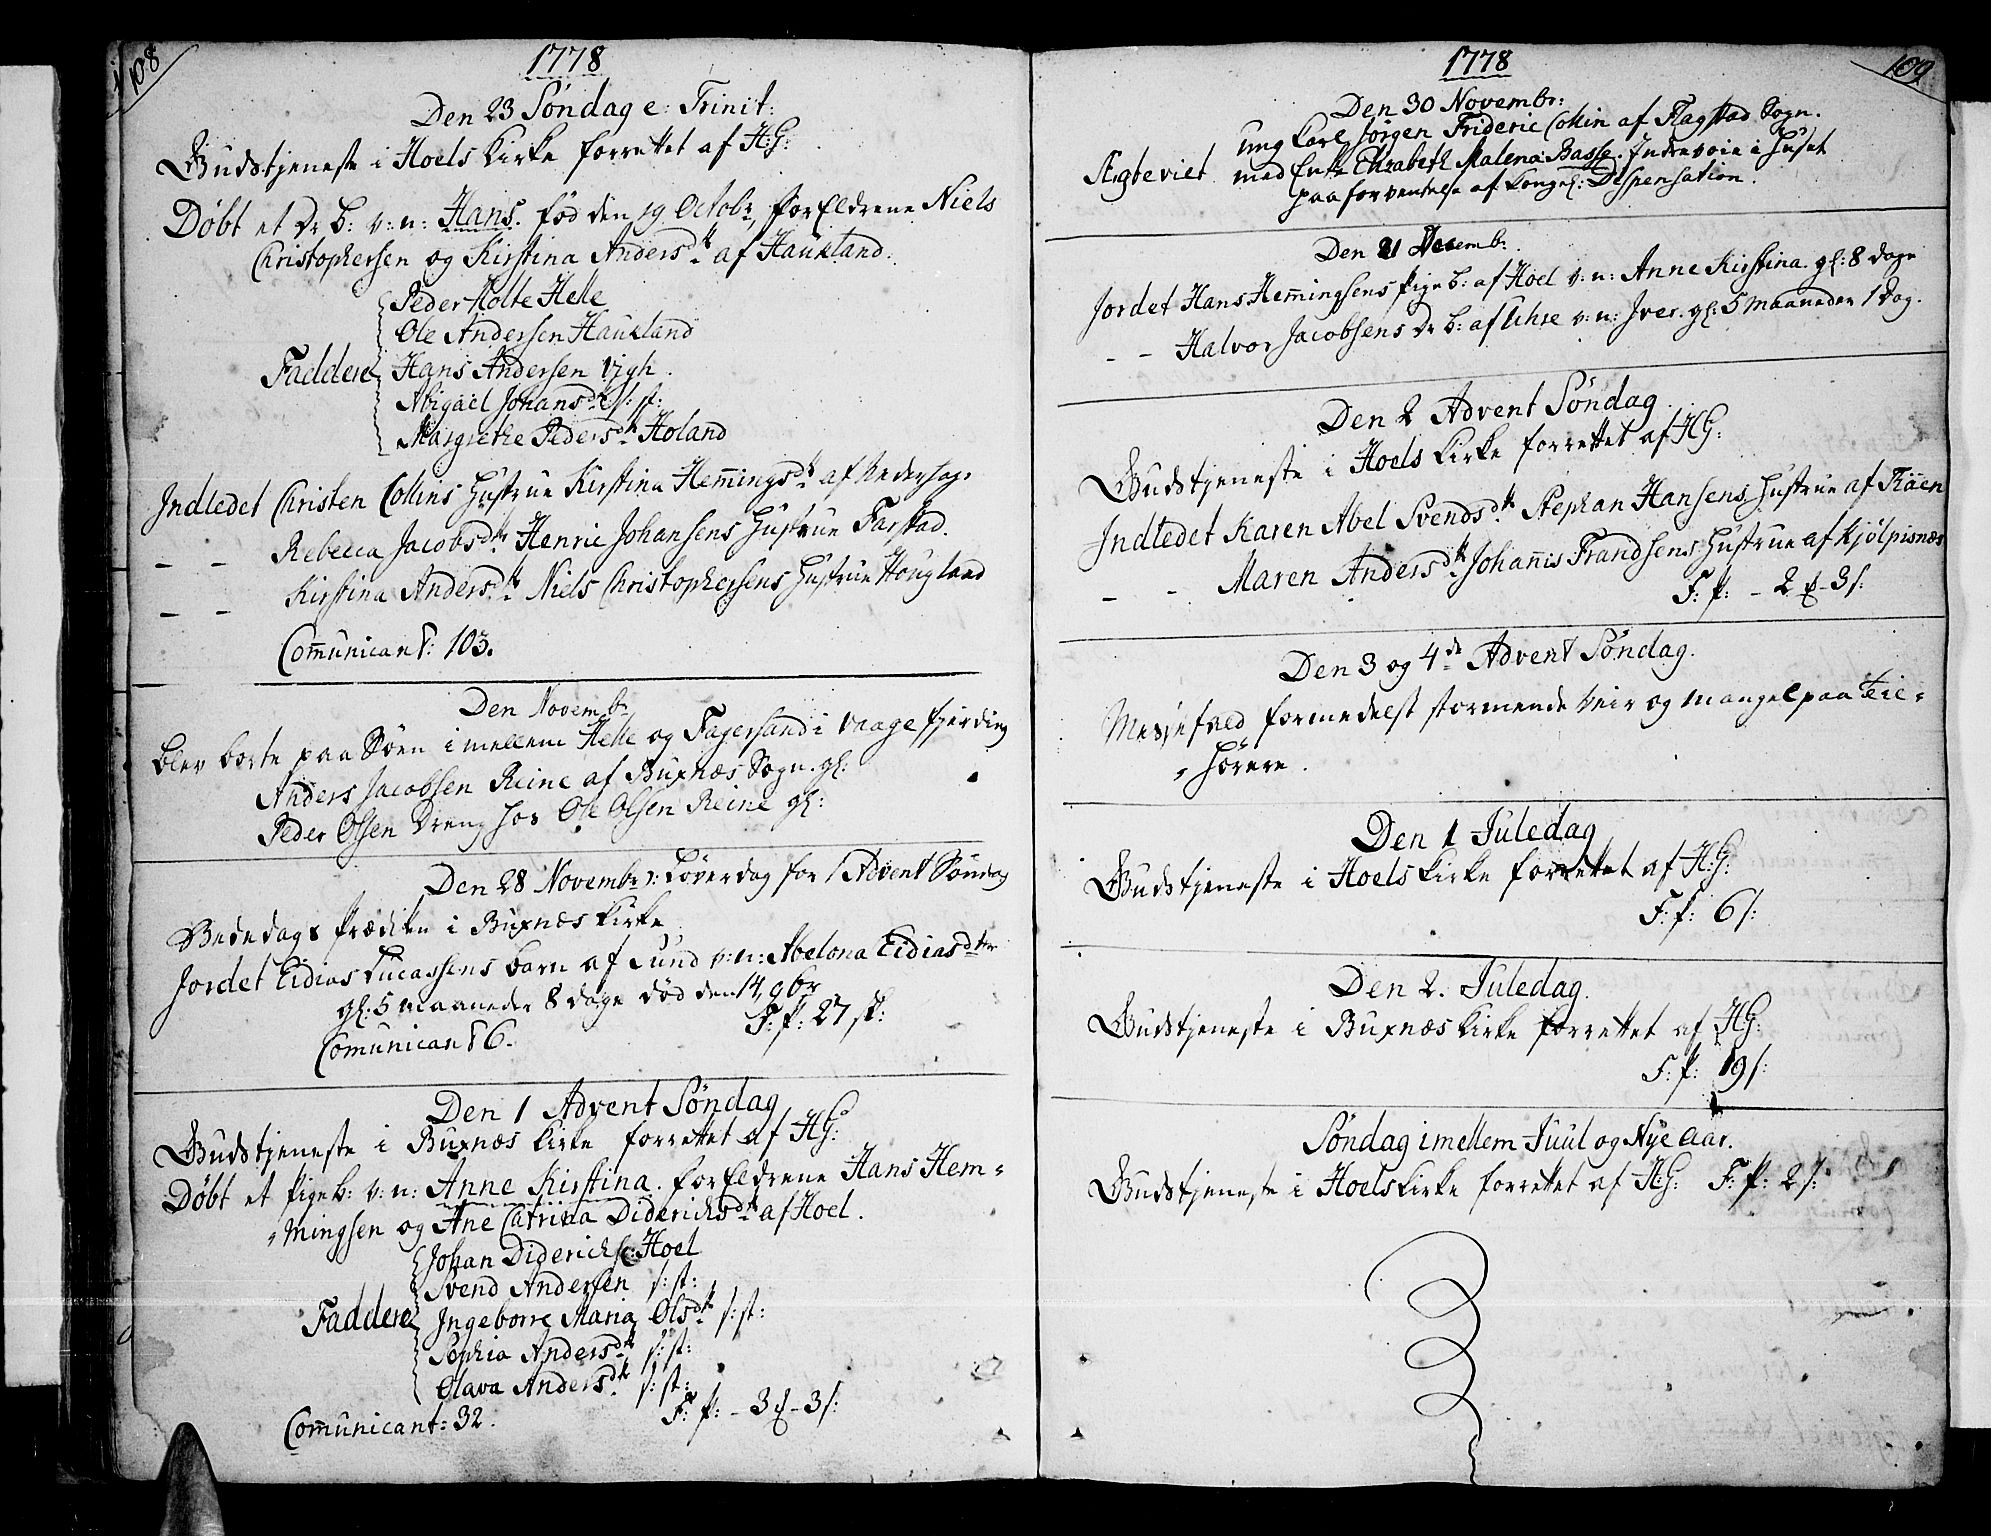 108
1778
Den 23 Søndag e: Trinit:
Gudstjeneste i Hoels Kirke forrettet af H:G:
Døbt et Dr B: v: n: Hans. fød den 19 Octobr, forEldrene Niels
Christophersen og Kirstina Andersdtr af Haukland.
Peder Molte Helle
Ole Andersen Haukland
Faddere Hans Andersen Vigh.
Abigael Johansdtr s: st:
Margrethe Pedersdtr Holand
Indledet Christen Collins Hustrue Kirstina Hem̄ingsdtr af
- - Rebecca Jacobsdtr Henric Johansens Hustrue Farstad.
- - Kirstina Andersdtr Niels Christophersens Hustrue Hougland
Com̄unicant: 103.
Den Novembr
blev borte paa Søen imellem Helle og Fagersand i Vaage fjerding
Anders Jacobsen Reine af Buxnæs Sogn. gl:
Peder Olsen Dreng hos Ole Olsen Reine gl:
Den 28 Novembr: Løverdag for 1 Advent Søndag
Bededags Prædiken i Buxnæs Kirke
Jordet Eidias Lucassens barn af Sund v: n: Abelona Eidiasdtr
gl: 5 maaneder 8 dage død den 14, 9br
Comunicant 6. F: p: 27 sk:
Den 1 Advent Søndag
Gudstjeneste i Buxnæs Kirke forrettet af HG:
Døbt et Pigeb: v: n: Anne Kirstina. forEldrene Hans Hem=
=mingsen og Ane Catrina Diderichsdtr af Hoel.
Johan Diderichs: Hoel
Svend Andersen s: st:
Faddere Ingeborre Maria Olsdtr s: st:
Sophia Andersdtr s: st:
Olava Andersdtr s: st:
Com̄unicant: 32. F: p: - 3 - 3 s:
109
1778
Den 30 Novembr:
Ung Carl Jörgen Frideric Collin af Flagstad Sogn.
Ægteviet med Enke Elisabeth Malena Basse. i Huset
paa forventelse af Kongel: Dispensation.
Den Decembr.
Jordet Hans Hem̄ingsens Pigeb: af Hoel v: n: Anne Kirstina. gl: 8 dage
- - Halvor Jacobsens Dr b: af Uhre v: n: Iver. gl: 5 Maaneder 1 Dag.
Den 2 Advent Søndag
Gudstjeneste i Hoels Kirke forrettet af HG:
Indledet Karen Abel Svendsdtr Stephan Hansens Hustrue af
- - Maren Andersdtr Johan̄is Frandsens Hustrue af Kjølpisnæs
F: p: - 2 - 3 s:
Den 3 og 4de Advent Søndag.
Messefald formedelst stormende Veir og mangel paa Tie=
=hörere.
Den 1 Juledag
Gudstjeneste i Hoels Kirke forrettet af H:G:
F: p: 6 s:
Den 2. Juledag.
Gudstjeneste i Buxnæs Kirke forrettet af HG:
F: p: 19 s:
Søndag imellem Juul og Nye Aar.
Gudstjeneste i Hoels Kirke forrettet af H:G: F: p: 2 s: